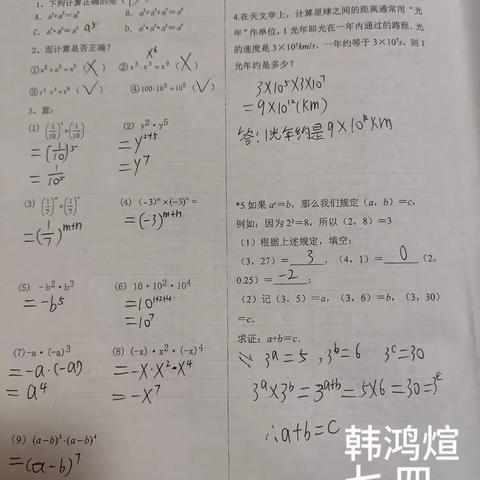 1、下列计算正确的是 ( )
C、 a⁵
2、面计算是否正确?
①x²+x³=x⁵ (X) ②x³·x³=x⁹ (X) x⁶
③y⁴·y⁴=y⁸ (√) ④100·10³=10⁵ (√)
3、算:
(1) (1/10)·(1/10)
=(1/10)⁵
=1/10⁵
(2) y²·y⁵
=y²⁺⁵
=y⁷
(3) (1/7)ᵐ(1/7)ⁿ
=(1/7)ᵐ⁺ⁿ
(4) (-3)ᵐ×(-3)ⁿ=
=(-3)ᵐ⁺ⁿ
(5) -b²·b³
=-b⁵
(6) 10·10²·10⁴
=10¹⁺²⁺⁴
=10⁷
(7)-a·(-a)³
=-a·(-a)³
=a⁴
(8) (-x)·x²·(-x)⁴
=-x·x²·x⁴
=-x⁷
(9) (a-b)³·(a-b)⁴
=(a-b)⁷
4.在天文学上,计算星球之间的距离通常用“光
年”作单位,1光年即光在一年内通过的路程.光
的速度是 3×10⁵km/s,一年约等于 3×10⁷s,则1
光年约是多少?
3×10⁵×3×10⁷
=9×10¹²(km)
答:1光年约是9×10¹²km
*5 如果 aᶜ=b,那么我们规定(a,b)=c,
例如:因为2³=8,所以(2,8)=3
(1)根据上述规定,填空:
(3,27)=3,(4,1)=0(2,
0.25)=-2;
(2)记(3,5)=a,(3,6)=b,(3,30)
=c.
求证:a+b=c.
3ᵃ=5,3ᵇ=6 3ᶜ=30
3ᵃ×3ᵇ=3ᵃ⁺ᵇ=5×6=30=3ᶜ
∴a+b=c
韩鸿煊